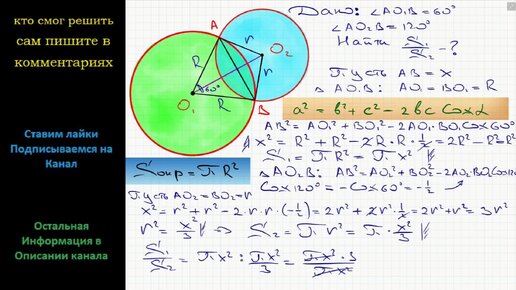 кто смог решить
сам пишите в
комментариях
Ставим лайки
Подписываемся на
Канал
Остальная
Информация в
Описании канала
A
r
O₂
R
r
60°
O₁
R
B
Дано: ∠AO₁B = 60°
∠AO₂B = 120°
Найти S₁/S₂ - ?
Пусть AB = x
△ AO₁B: AO₁ = BO₁ = R
a² = b² + c² - 2bc Cosα
AB² = AO₁² + BO₁² - 2AO₁·BO₁ Cos60°
x² = R² + R² - 2R·R·1/2 = 2R² - R² = R²
S₁ = πR² = πx²
Sокр = πR²
△ AO₂B: AB² = AO₂² + BO₂² - 2AO₂·BO₂ Cos120°
Cos120° = -Cos60° = -1/2
Пусть AO₂ = BO₂ = r
x² = r² + r² - 2·r·r·(-1/2) = 2r² + 2r²·1/2 = 2r² + r² = 3r²
r² = x²/3 ⇒ S₂ = πr² = π·x²/3
S₁/S₂ = πx² : πx²/3 = πx²·3/πx²